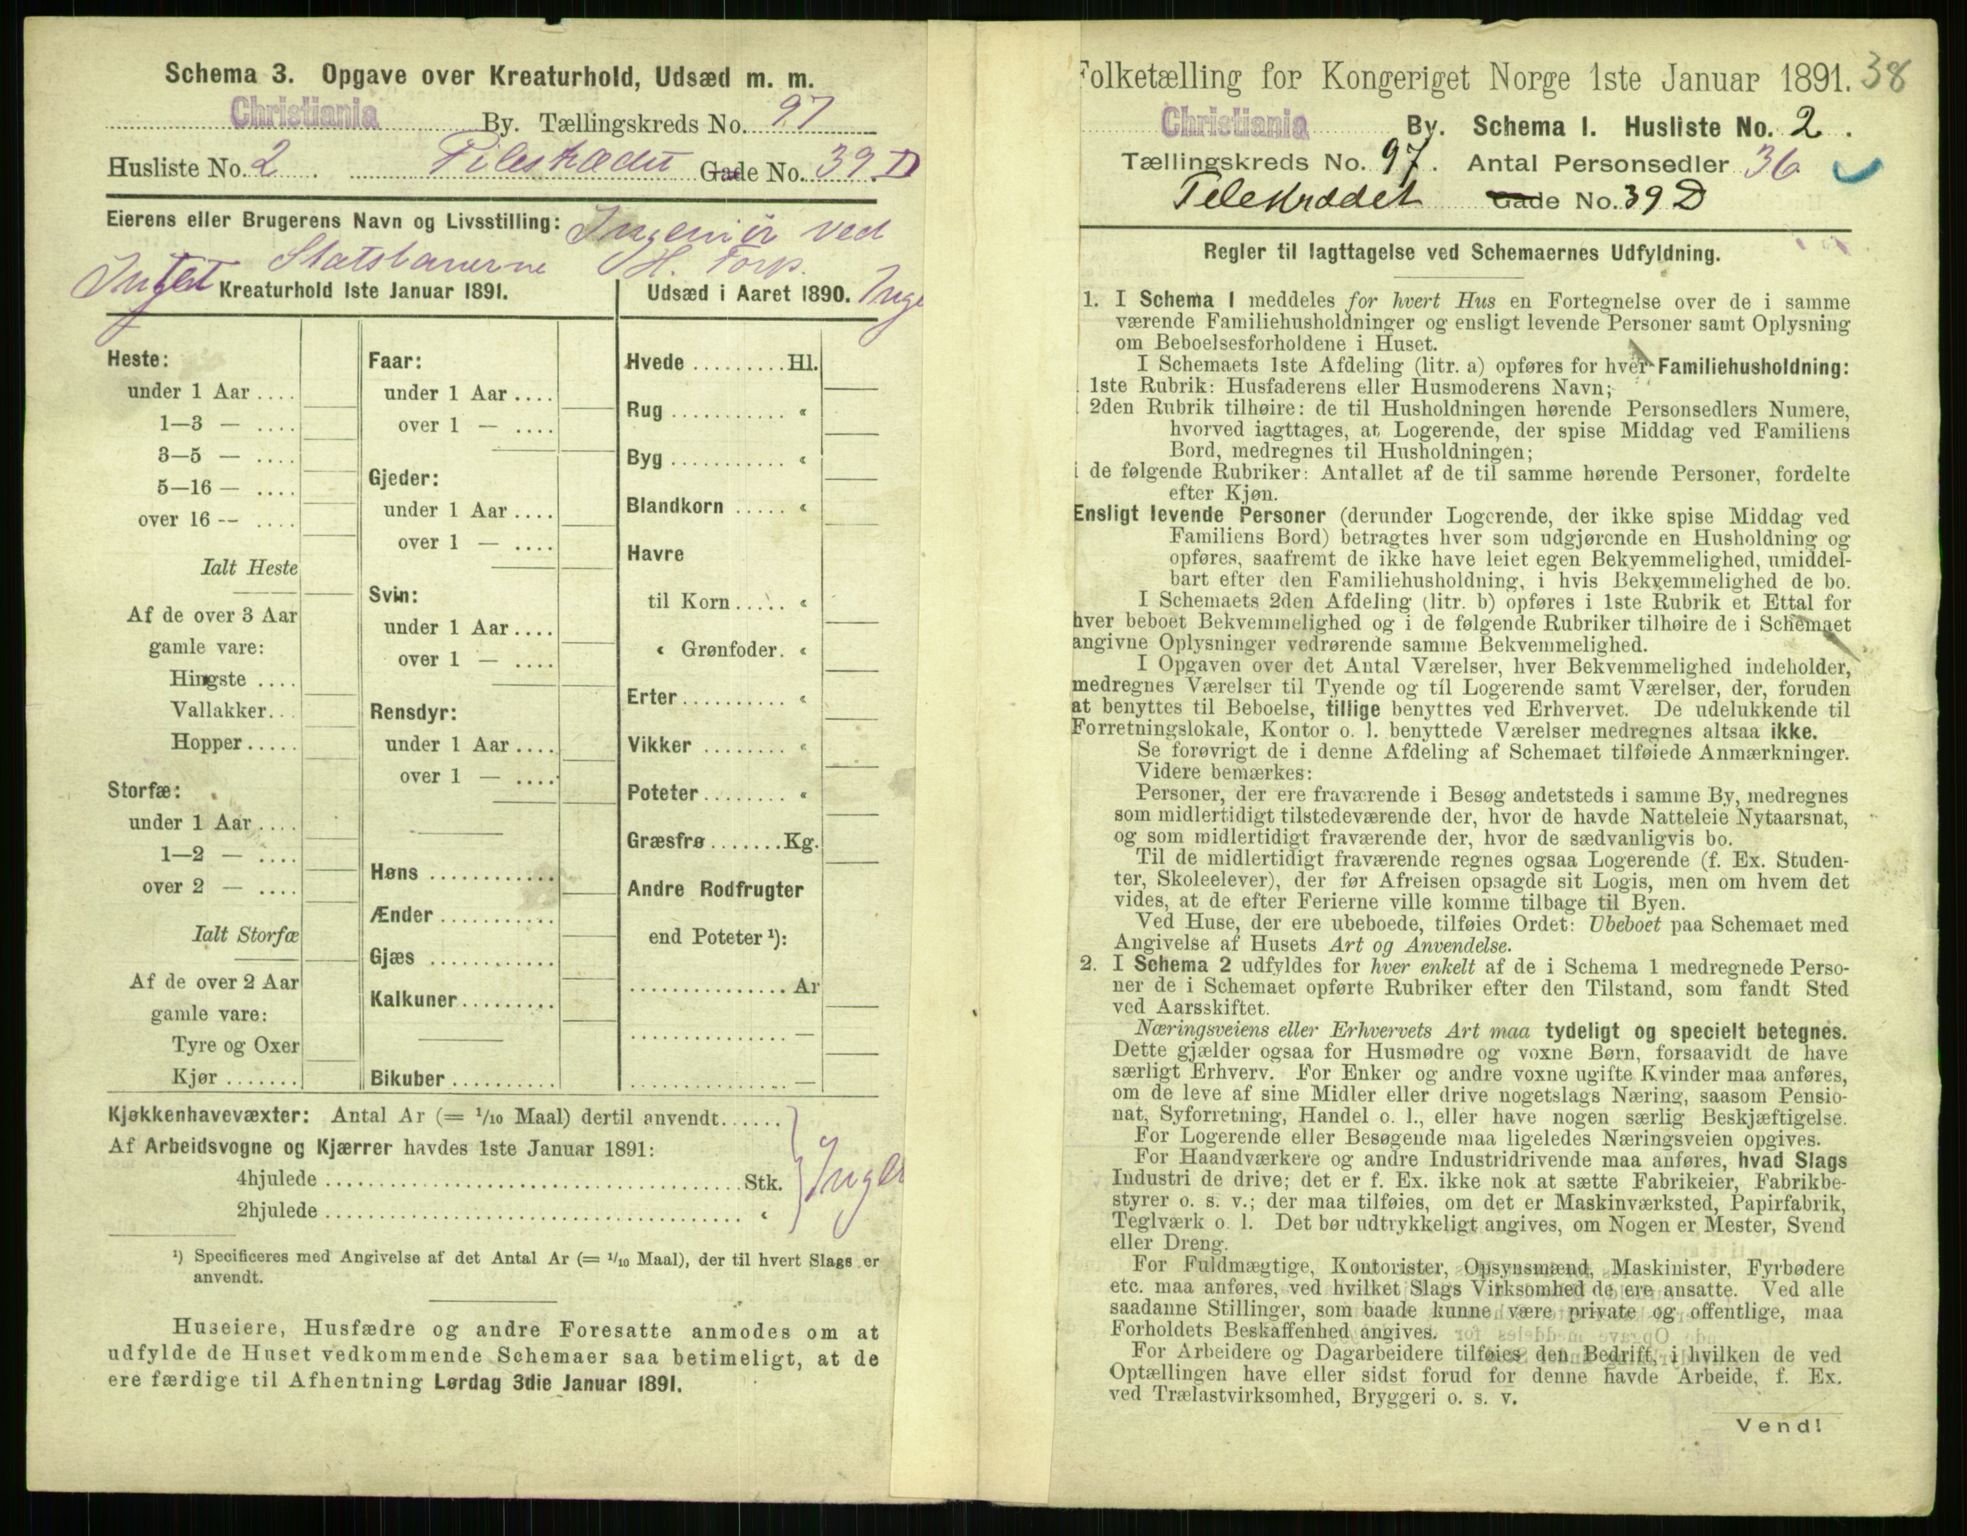 Schema 3. Opgave over Kreaturhold, Udsæd m. m.
Christiania By. Tællingskreds No. 97
Husliste No. 2 . Pilestrædet Gade No. 39 D
Eierens eller Brugerens Navn og Livsstilling: Ingeniør ved
Statsbanerne H. Torp.
Intet Kreaturhold 1ste Januar 1891.
Udsæd i Aaret 1890. Inge
Heste:
under 1 Aar ....
1—3 — ....
3—5 — ....
5—16 — ....
over 16 -- ....
Ialt Heste
Af de over 3 Aar
gamle vare:
Hingste ....
Vallakker...
Hopper.....
Storfæ:
under 1 Aar ....
1—2 — ....
over 2 — ....
Ialt Storfæ
Af de over 2 Aar
gamle vare:
Tyre og Oxer
Kjør .......
Faar:
under 1 Aar ....
over 1 — ....
Gjeder:
under 1 Aar ....
over 1 — ....
Svin:
under 1 Aar ....
over 1 — ....
Rensdyr:
under 1 Aar ....
over 1 — ....
Høns ............
Ænder ...........
Gjæs ............
Kalkuner.........
Bikuber ..........
Hvede .........Hl.
Rug ........... «
Byg ........... «
Blandkorn ..... «
Havre
til Korn ..... «
« Grønfoder. «
Erter .......... «
Vikker ........ «
Poteter........ «
Græsfrø .......Kg.
Andre Rodfrugter
end Poteter ¹):
............... Ar
............... —
............... —
Kjøkkenhavevæxter: Antal Ar (= 1/10 Maal) dertil anvendt......
Af Arbeidsvogne og Kjærrer havdes 1ste Januar 1891:
4hjulede ........................................ Stk.
2hjulede ........................................ «
Inger
¹) Specificeres med Angivelse af det Antal Ar (= 1/10 Maal), der til hvert Slags er
anvendt.
Huseiere, Husfædre og andre Foresatte anmodes om at
udfylde de Huset vedkommende Schemaer saa betimeligt, at de
ere færdige til Afhentning Lørdag 3die Januar 1891.
Folketælling for Kongeriget Norge 1ste Januar 1891. 38
Christiania By. Schema 1. Husliste No. 2 .
Tællingskreds No. 97 . Antal Personsedler 36
Pilestrædet Gade No. 39 D
Regler til Iagttagelse ved Schemaernes Udfyldning.
1. I Schema 1 meddeles for hvert Hus en Fortegnelse over de i samme
værende Familiehusholdninger og ensligt levende Personer samt Oplysning
om Beboelsesforholdene i Huset.
I Schemaets 1ste Afdeling (litr. a) opføres for hver Familiehusholdning:
1ste Rubrik: Husfaderens eller Husmoderens Navn;
2den Rubrik tilhøire: de til Husholdningen hørende Personsedlers Numere,
hvorved iagttages, at Logerende, der spise Middag ved Familiens
Bord, medregnes til Husholdningen;
i de følgende Rubriker: Antallet af de til samme hørende Personer, fordelte
efter Kjøn.
Ensligt levende Personer (derunder Logerende, der ikke spise Middag ved
Familiens Bord) betragtes hver som udgjørende en Husholdning og
opføres, saafremt de ikke have leiet egen Bekvemmelighed, umiddel-
bart efter den Familiehusholdning, i hvis Bekvemmelighed de bo.
I Schemaets 2den Afdeling (litr. b) opføres i 1ste Rubrik et Ettal for
hver beboet Bekvemmelighed og i de følgende Rubriker tilhøire de i Schemaet
angivne Oplysninger vedrørende samme Bekvemmelighed.
I Opgaven over det Antal Værelser, hver Bekvemmelighed indeholder,
medregnes Værelser til Tyende og til Logerende samt Værelser, der, foruden
at benyttes til Beboelse, tillige benyttes ved Erhvervet. De udelukkende til
Forretningslokale, Kontor o. l. benyttede Værelser medregnes altsaa ikke.
Se forøvrigt de i denne Afdeling af Schemaet tilføiede Anmærkninger.
Videre bemærkes:
Personer, der ere fraværende i Besøg andetsteds i samme By, medregnes
som midlertidigt tilstedeværende der, hvor de havde Natteleie Nytaarsnat,
og som midlertidigt fraværende der, hvor de sædvanligvis bo.
Til de midlertidigt fraværende regnes ogsaa Logerende (f. Ex. Studen-
ter, Skoleelever), der før Afreisen opsagde sit Logis, men om hvem det
vides, at de efter Ferierne ville komme tilbage til Byen.
Ved Huse, der ere ubeboede, tilføies Ordet: Ubeboet paa Schemaet med
Angivelse af Husets Art og Anvendelse.
2. I Schema 2 udfyldes for hver enkelt af de i Schema 1 medregnede Perso-
ner de i Schemaet opførte Rubriker efter den Tilstand, som fandt Sted
ved Aarsskiftet.
Næringsveiens eller Erhvervets Art maa tydeligt og specielt betegnes.
Dette gjælder ogsaa for Husmødre og voxne Børn, forsaavidt de have
særligt Erhverv. For Enker og andre voxne ugifte Kvinder maa anføres,
om de leve af sine Midler eller drive nogetslags Næring, saasom Pensio-
nat, Syforretning, Handel o. l., eller have nogen særlig Beskjæftigelse.
For Logerende eller Besøgende maa ligeledes Næringsveien opgives.
For Haandværkere og andre Industridrivende maa anføres, hvad Slags
Industri de drive; det er f. Ex. ikke nok at sætte Fabrikeier, Fabrikbe-
styrer o. s. v.; der maa tilføies, om det er Maskinværksted, Papirfabrik,
Teglværk o. l. Det bør udtrykkeligt angives, om Nogen er Mester, Svend
eller Dreng.
For Fuldmægtige, Kontorister, Opsynsmænd, Maskinister, Fyrbødere
etc. maa anføres, ved hvilket Slags Virksomhed de ere ansatte. Ved alle
saadanne Stillinger, som baade kunne være private og offentlige, maa
Forholdets Beskaffenhed angives.
For Arbeidere og Dagarbeidere tilføies den Bedrift, i hvilken de ved
Optællingen have eller sidst forud for denne havde Arbeide, f. Ex.
ved Trælastvirksomhed, Bryggeri o. s. v.
Vend!